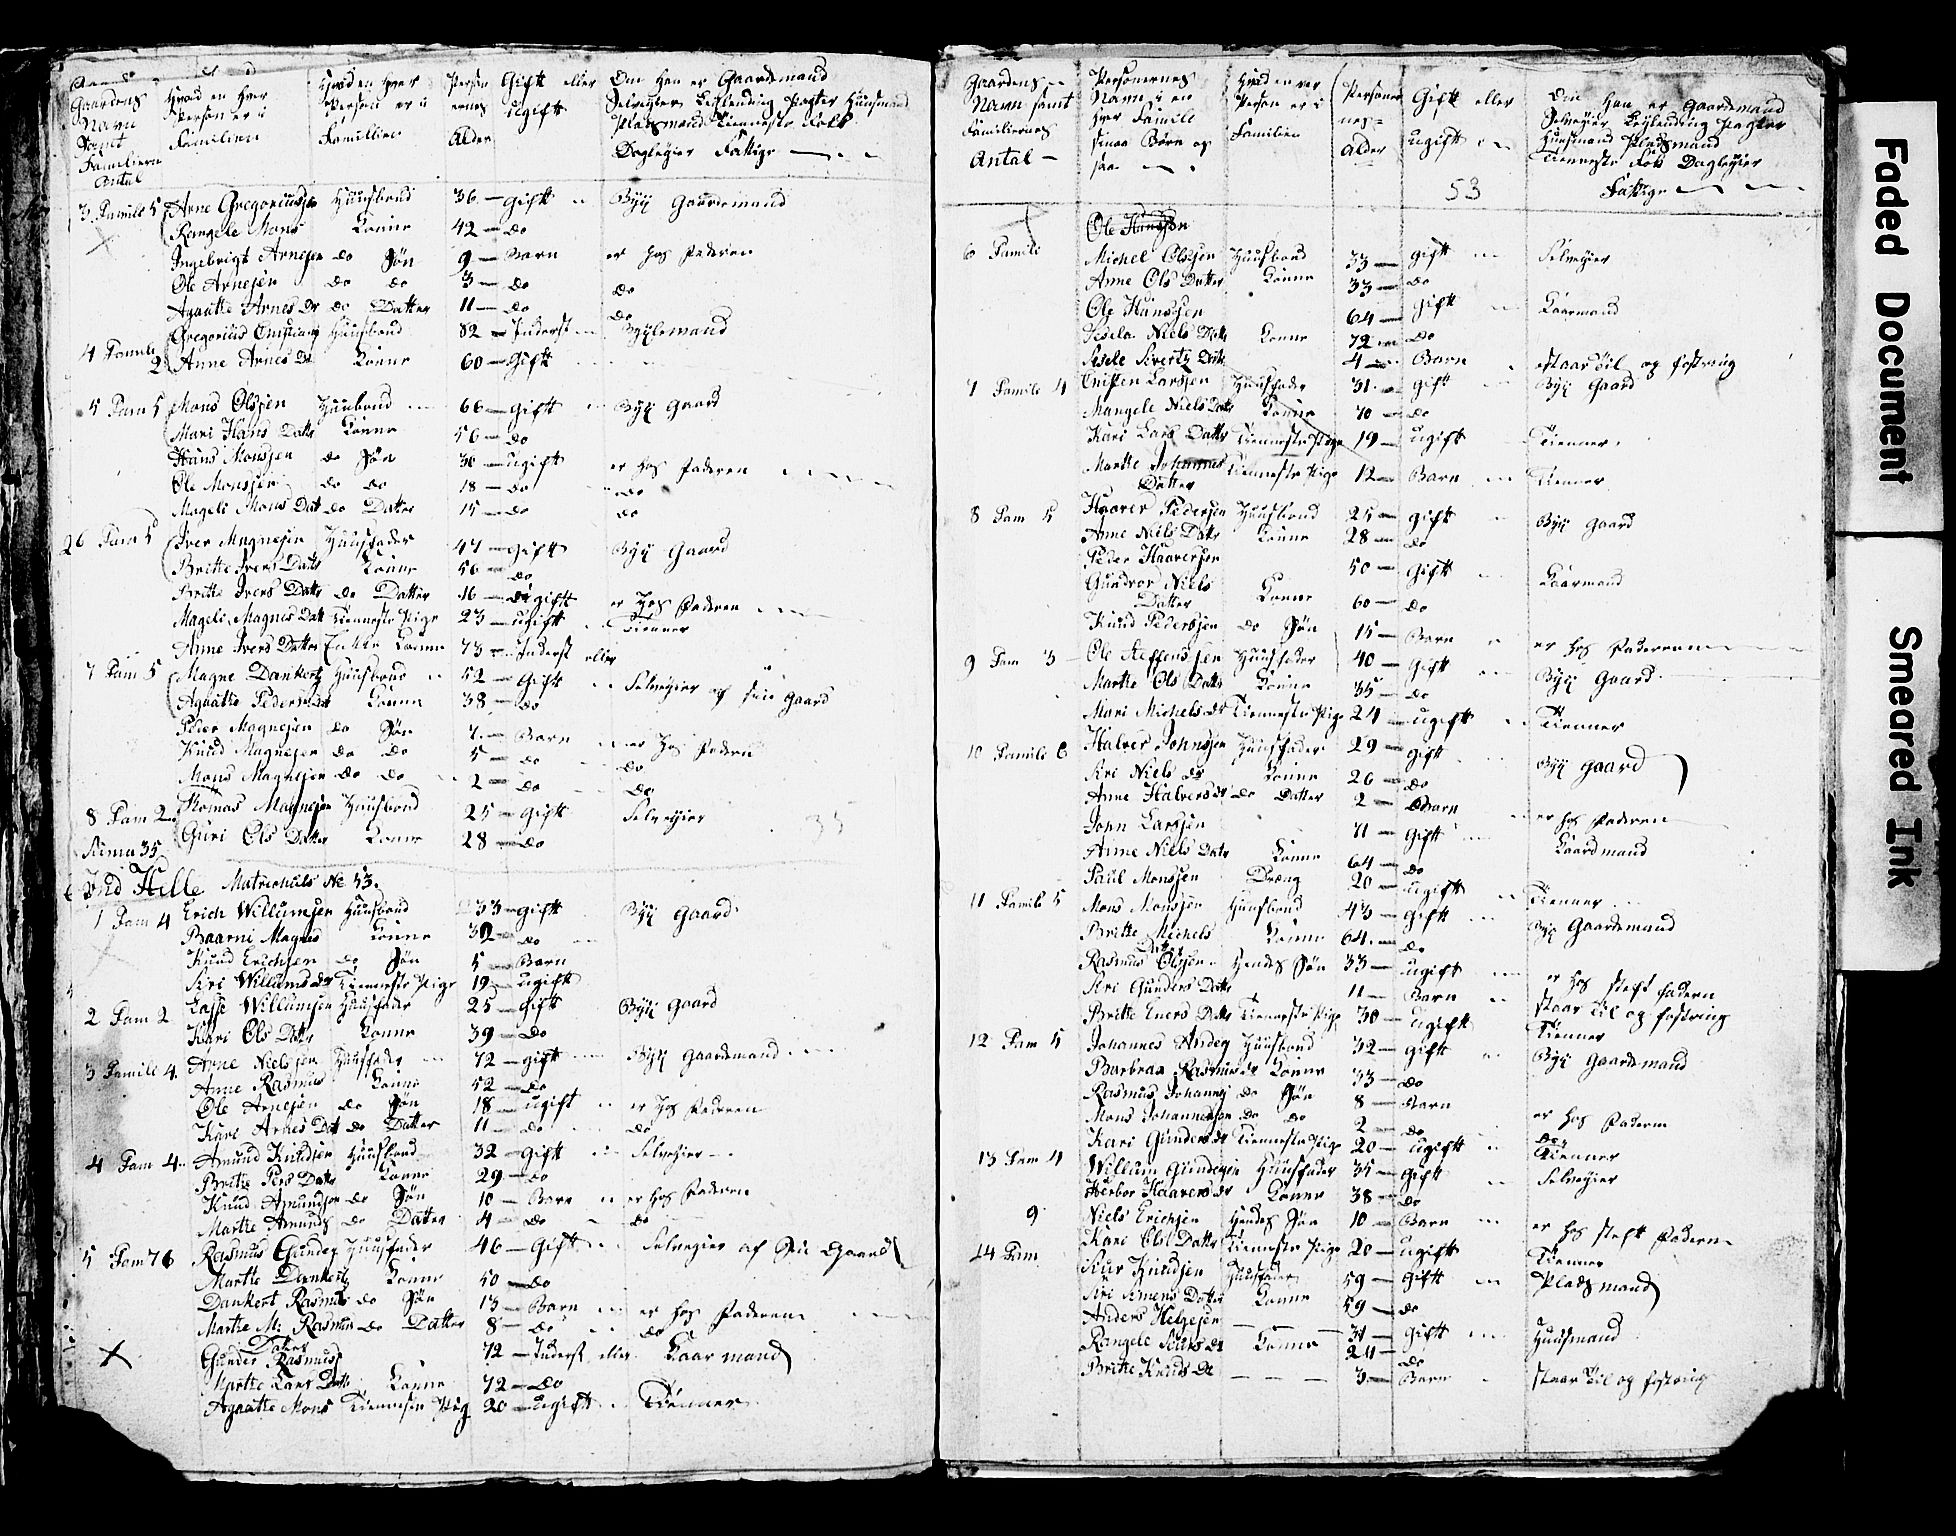 Gaardens Navn Samt Familiern Antal
Hvad en hver Person er i Familien
Hvad en hver Person er i Familien
Person ernes Alder
Gift eller ugift
Om han er Gaardemand Selveyer Leylending Pagter Huusmand Pladsmand Tienneste Folk Dagleyier Fattige
3 Famili 5 Arne Gregoriussen Huusbond 36 - gift Byx Gaardemand
Rangele Mons Konne 42 - do
Ingebrigt Arnesen do Søn 9 - Barn er hos Faderen
Ole Arnesen do do 3 - do do
Agatte Arnes Dr do Datter 11 - do do
4 Famile 2 Gregorius Huusbond 82 - Inderst
Anne Arnes Dr Konne 60 - Gift
5 Fam 5 Mons Olsen Huusbond 66 - gift Byx Gaard
Mari Hans Datr Konne 56 - do
Hans Monsen do Søn 30 - ugift er hos Faderen
Ole Monsen do do 18 - do do
Mageli Mons Dat do Datter 15 - do do
6 Fam 5 Iver Magnesen Huusfader 47 - gift Byx Gaard
Britte Ivers Datr Konne 56 - do
Britte Ivers Datr do Datter 16 - ugift er hos Faderen
Mageli Magnes Datt Tienneste Pige 23 - ugift Tienner
Anne Ivers Datter Enke Konne 73 - Inderst eller
7 Fam 5 Magne Dankertz Huusbond 52 - Gift Selveyier af sin Gaard
Agatte Peders Datr Konne 38 - do
Peder Magnesen do Søn 7 - Barn er hos Faderen
Knud Magnesen do do 5 - do do
Mons Magnesen do do 2 - do do
8 Fam 2 Thomas Magnesen Huusbond 25 - Gift Selveyier
Guri Ols Datter Konne 28 - do
Suma 35
Ind Hille Matriculs No 53
1 Fam 4 Erich Willumsen Huusbond 33 - gift Byx Gaard
Baarni Magnes Konne 32 - do
Knud Erichsen do Søn 5 - Barn
Siri Willums Dr Tienneste Pige 19 - ugift
2 Fam 2 Lasse Willumsen Huusfader 25 - gift Byx Gaard
Kari Ols Datr Konne 39 - do
3 Famili 4 Arne Nielssen Huusfader 72 - gift Byx Gaardemand
Anne Rasmus Konne 52 - do
Ole Arnesen do Søn 18 - ugift er hos Faderen
Kari Arnes Dat do Datter 11 - do do
4 Fam 4 Amund Knudsen Huusbond 32 - gift Selveyier
Britte Pers Datr Konne 29 - do
Knud Amundsen do Søn 10 - Barn er hos Faderen
Marthe Amunds do Datter 4 - do do
5 Fam 7 6 Rasmus Gundes Huusfader 46 - Gift Selveyier af Sin Gaard
Marthe Dankertz Konne 50 - do
Dankert Rasmus do Søn 13 - Barn er hos Faderen
Marthe M: Rasmus Datter do Datter 8 - do do
Gunder Rasmus 72 - Inderst eller Kaarmand
Marthe Lars Datt Konne 72 - do
Agatte Mons Tienneste Pig 20 - ugift Tienner
Gaardens Navn samt Familiernes Antal
Personernes Navn i en hver Famili smaa Børn og saa
Hvad en ver Person er i Familien
Personer nes Alder
Gift eller ugift
Om han er Gaardemand Selveyier Leylending Pagter Huusmand Pladsmand Tienneste Folk Dagleyier Fattige
53
Ole Hansson
6 Famili Michel Olssen Huusbond 33 - gift Selveyier
Anne Ols Datter Konne 33 - do
Ole Hanssen 64 - gift Kaarmand
Sesela Niels Datr Konne 72 - do
Sesele Sivertz Datr 4 - Barn staar til og fostring
7 Famili 4 Cristen Larssen Huusfader 31 - gift Byx Gaard
Mangele Niels Datr Konne 70 - do
Kari Lars Datter Tienneste Pige 19 - ugift Tienner
Marthe Johannes Datter Tienneste Pige 12 - Barn Tienner
8 Fam 5 Haaver Pedersen Huusbond 25 - gift Byx Gaard
Anne Niels Datr Konne 28 - do
Peder Haaversen 50 - Gift Kaarmand
Gundvor Niels Datter Konne 60 - do
Knud Pederssen do Søn 15 - Barn er hos Faderen
9 Fam 3 Ole Steffenssen Huusfader 40 - Gift Byx Gaard
Marthe Ols Datr Konne 35 - do
Mari Michels Dr Tienneste Pige 24 - ugift Tienner
10 Famili 6 Halver Johnssen Huusfader 29 - gift Byx gaard
Siri Niels Dr Konne 26 - do
Anne Halvers Dr do Datter 2 - Barn er hos Faderen
John Larssen 71 - Gift Kaardmand
Anne Niels Datr Konne 64 - do
Paul Monssen Dreng 20 - ugift Tienner
11 Famili 5 Mons Monssen Huusbond 43 - Gift Byx Gaardemand
Britte Michels Datr Konne 64 - do
Rasmus Olssen Hendes Søn 33 - ugift er hos Stef fadern
Siri Gunders Datr 11 - Barn staar til og fostring
Britte Ivers Datr Tienneste Pige 30 - ugift Tienner
12 Fam 5 Johannes Andes Huusbond 32 - Gift Byx Gaardemand
Barbraa Rasmus Dr Konne 33 - do
Rasmus Johannes do Søn 8 - Barn er hos Faderen
Mons Johannessen do do 2 - do do
Kari Gunders Dr Tienneste Pige 20 - ugift Tienner
13 Fam 4 Willum Gundersen Huusfader 35 - Gift Selveyier
Herbor Haavers Dr Konne 38 - do
9 Niels Erichsen Hendes Søn 10 - Barn er hos Steft Faderen
Kari Ols Datter Tienneste Pige 20 - ugift Tienner
14 Fam Siur Knudsen Huusfader 59 - Gift Pladsmand
Siri Simens Datter Konne 59 - do
Anders Helgesen 31 - Gift Huusmand
Rangele Siurs Dr Konne 24 - do
Britte Knuds Dr 3 - Barn staar til og fostring
Faded Document
Smeared Ink